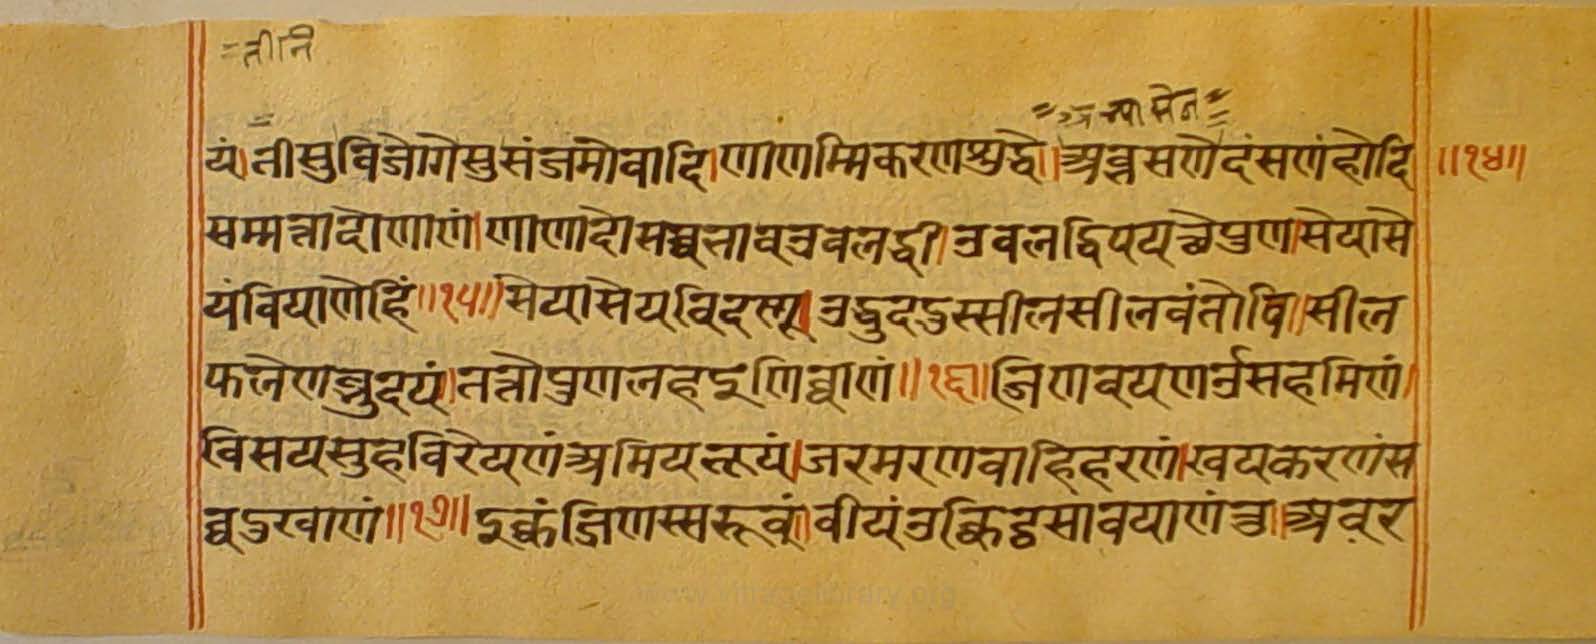 =तीनि
=अभ्यासेन=
यं।तीसुविजोगेसुसंजमोवादि।णाणम्मिकरणशुद्धे।अब्भसणेदंसणंहोदि॥१४॥
सम्मत्तादोणाणं।णाणादोसव्वभावउवलद्धी।उवलद्धिपयत्थेपुण।सेयासे
यंवियाणेहिं॥१५॥सेयासेयविदण्हू।उद्धुददुस्सीलसीलवंतोवि।सील
फलेणब्भुदयं।तत्तोपुणलहइणिव्वाणं॥१६॥जिणवयणउंसहमिणं।
विसयसुहविरेयणंअमियभूयं।जरमरणवाहिहरणं।खयकरणंस
व्वदुखाणं॥१७॥इक्कंजिणस्सरूवं।वीयंउक्किट्ठसावयाणंतु।अवर